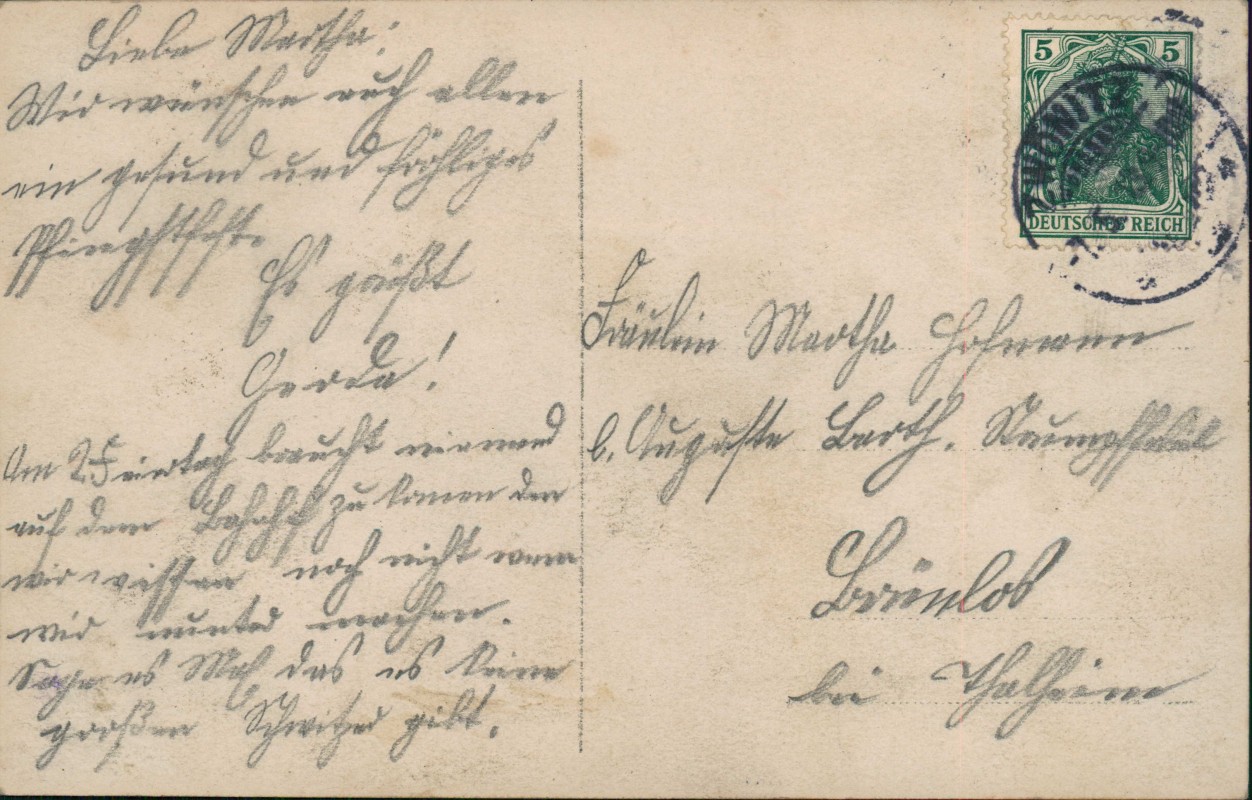 Liebe Martha!
Wir wünschen euch allen
ein gesund und fröhliges
Pfingstfest.
Es grüßt
Gerda!
Am 2. Feiertag braucht niemand
auf dem Bahnhf zu komen den
wir wissen noch nicht wenn
wir nunter machen.
Sage es das es keine
großen gibt.
5 5
DEUTSCHES REICH
ZWÖNITZ
Fräulein Martha Hofmann
b. Auguste Barth.
Brünlos
bei Thalheim